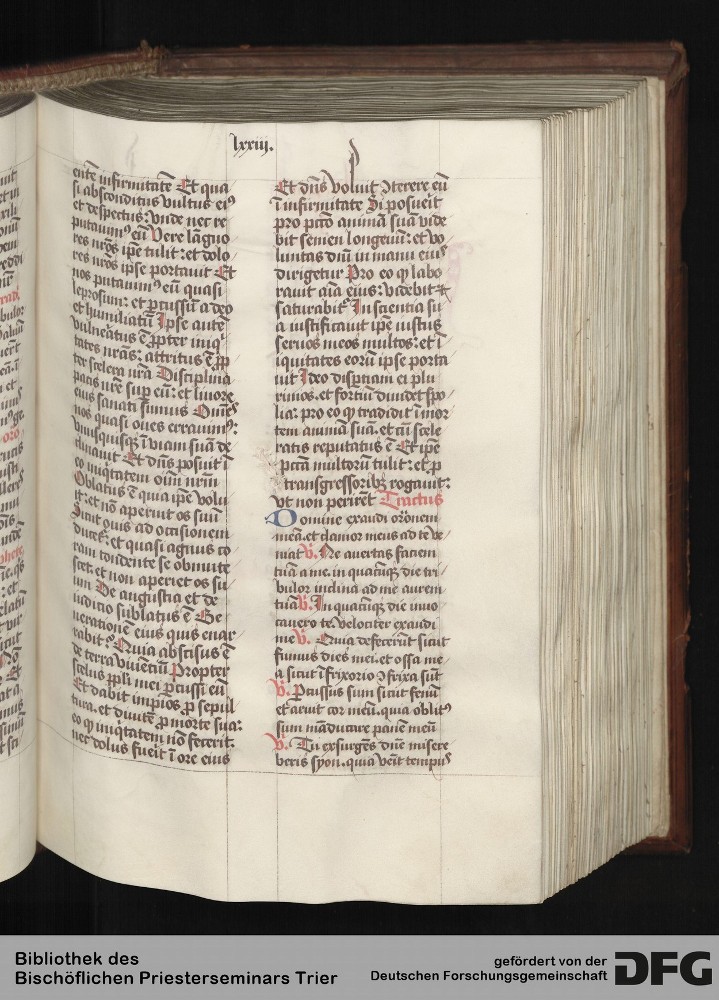 lxxiij.
ente infirmitatē Et qua
si absconditus vultus eiꝰ
et despectus: vnde nec re
putauimꝰ eū Vere lāguo
res nr̄os ip̄e tulit: et dolo
res nr̄os ipse portauit Et
nos putauimꝰ eū quasi
leprosum: et ꝑcussū a deo
et humiliatū Ipse autē
vulneratus ē ꝓpter iniqⁱ
tates nr̄as: attritus ē ꝓp
ter scelera nr̄a Disciplina
pacis nr̄e suꝑ eū: et liuore
eius sanati sumus Om̄es
nos quasi oues errauimꝰ:
vnusquisqꝫ ī viam suā de
clinauit Et dn̄s posuit ī
eo iniqͥtatem oīm nr̄m
Oblatus ē quia ipe volu
it: et nō aperuit os suū
Sicut ouis ad occisionem
ducet᷑: et quasi agnus co
ram tondente se obmute
scet: et non aperiet os su
um De angustia et de
iudicio sublatus ē Ge
nerationē eius quis enar
rabit? Quia abscisus ē
de terra viuenciū Propter
scelus ppl̄i mei ꝑcussi eū
Et dabit impios ꝓ sepul
tura. et diuitē ꝓ morte sua:
eo qͥ iniqͥtatem nō fecerit.
nec dolus fuerit ī ore eius
Et dn̄s voluit ꝯterere eū
ī infirmitate Si posuerit
pro pctō animā suā vide
bit semen longeuū: et vo
luntas dn̄i in manu eius
dirigetur Pro eo qͥ labo
rauit aīa eius: videbit ⁊
saturabit᷑ In scientia su
a iustificauit ipē iustus
seruos meos multos: et ī
iquitates eorū ipse porta
uit Ideo disꝑtiam ei plu
rimos. et fortiū diuidet spo
lia: pro eo qͥ tradidit ī mor
tem animā suā. et cū scele
ratis reputatus ē Et ipē
pctā multorū tulit: et ꝓ
transgressoribꝫ rogauit:
vt non perirēt Tractus
Domine exaudi orōnem
meā. et clamor meus ad te ve
niat V̓. Ne auertas faciem
tuā a me. in quacūqꝫ die tri
bulor inclina ad me aurem
tuā V̓. In quacūqꝫ die inuo
cauero te. velociter exaudi
me V̓. Quia defecerūt sicut
fumus dies mei. et ossa me
a sicut ī frixorio ꝯfrixa sūt
V̓. Percussus sum sicut fenū
et aruit cor meū. quia oblitꝰ
sum māducare panē meū
V̓. Tu exsurgēs dn̄e misere
beris syon. quia venit tempus
Bibliothek des
Bischöflichen Priesterseminars Trier
gefördert von der
Deutschen Forschungsgemeinschaft
DFG